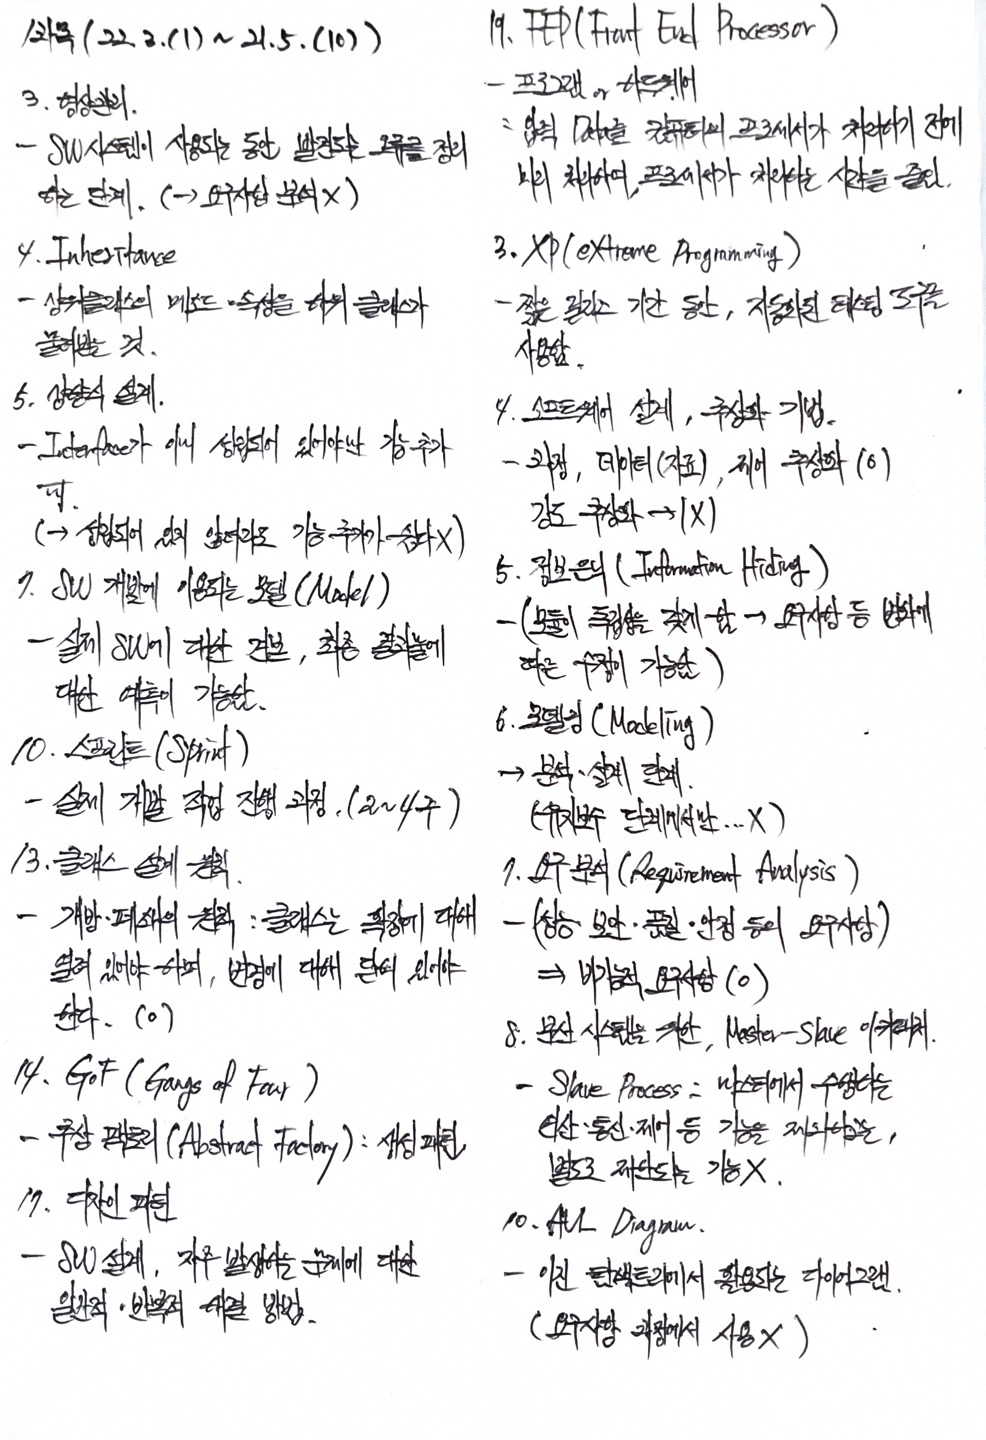 1과목 (22.3.(1) ~ 21.5.(10))
3. 형상관리.
- SW 시스템이 사용되는 동안 발견되는 오류를 정리
하는 단계. (→ 요구사항 분석 X)
4. Inheritance
- 상위클래스의 메소드·속성을 하위 클래스가
물려받는 것.
5. 상향식 설계.
- Interface가 이미 성립되어 있어야만 기능 추가
(→ 성립되어 있지 않더라도 기능 추가가 쉽다 X)
7. SW 개발에 이용되는 모델 (Model)
- 실제 SW에 대한 견본, 최종 결과물에
대한 예측이 가능함.
10. 스프린트 (Sprint)
- 실제 개발 작업 진행 과정. (2~4주)
13. 클래스 설계 원칙.
- 개방·폐쇄의 원칙 : 클래스는 확장에 대해
열려 있어야 하며, 변경에 대해 닫혀 있어야
한다. (O)
14. GoF (Gangs of Four)
- 추상 팩토리 (Abstract Factory) : 생성 패턴.
17. 디자인 패턴
- SW 설계, 자주 발생하는 문제에 대한
일반적·반복적 해결 방법.
19. FEP (Front End Processor)
- 프로그램 or 하드웨어
: 입력 Data를 컴퓨터의 프로세서가 처리하기 전에
미리 처리하여, 프로세서가 처리하는 시간을 줄임.
3. XP (eXtreme Programming)
- 짧은 릴리즈 기간 동안, 자동화된 테스팅 도구를
사용함.
4. 소프트웨어 설계, 추상화 기법.
- 과정, 데이터(자료), 제어 추상화 (O)
강도 추상화 → (X)
5. 정보은닉 (Information Hiding)
- (모듈이 독립성을 갖게 함 → 요구사항 등 변화에
따른 수정이 가능함)
6. 모델링 (Modeling)
→ 분석·설계 단계.
(유지보수 단계에서만 ... X)
7. 요구 분석 (Requirement Analysis)
- (성능·보안·품질·안정 등의 요구사항)
⇒ 비기능적 요구사항 (O)
8. 분산 시스템을 위한, Master-Slave 아키텍처.
- Slave Process : 마스터에서 수행하는
연산·통신·제어 등 기능을 제외하고는,
별도로 제한되는 기능 X.
10. AVL Diagram.
- 이진 탐색트리에서 활용되는 다이어그램.
(요구사항 과정에서 사용 X)